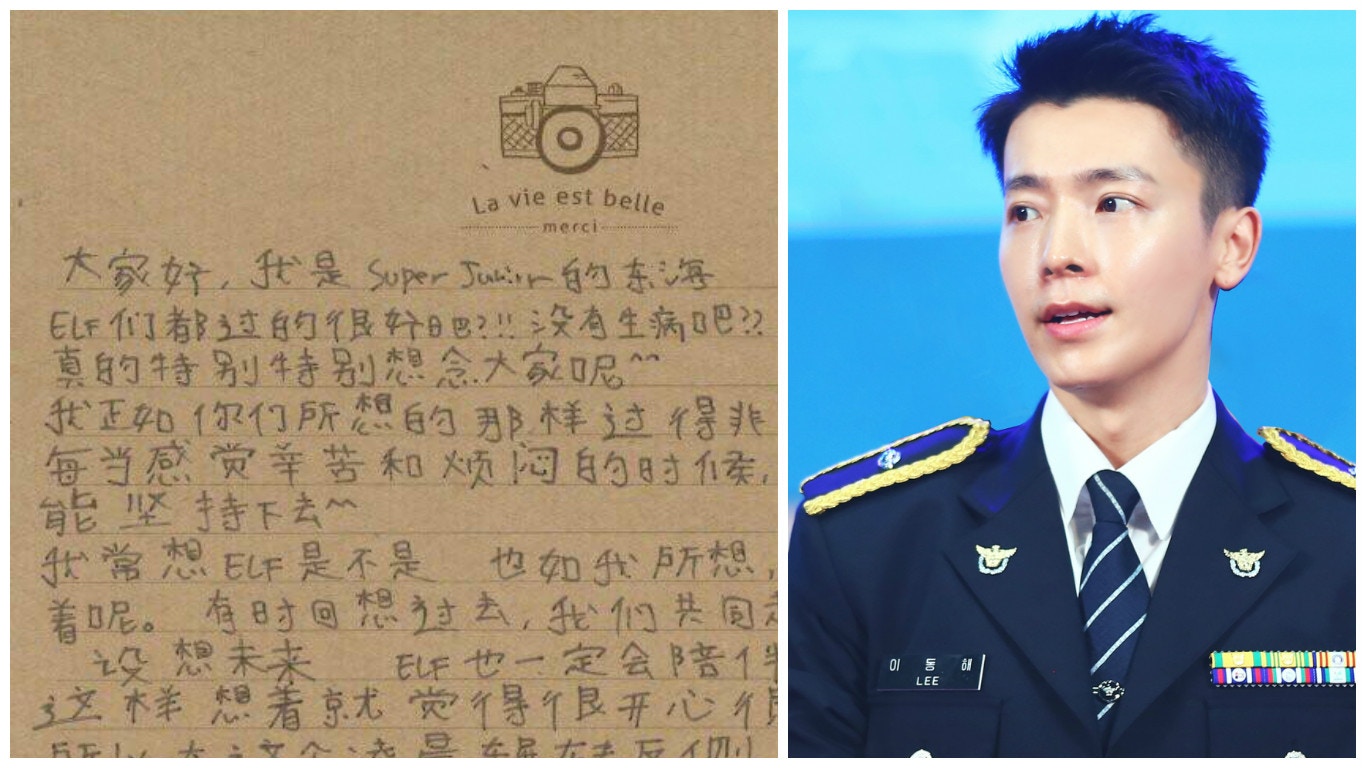 La vie est belle
merci
大家好，我是 Super Junior 的东海
ELF们都过的很好吧?!! 没有生病吧??
真的特别特别想念大家呢^^
我正如你们所想的那样过得非
每当感觉辛苦和烦闷的时候,
能坚持下去^^
我常想ELF是不是 也如我所想,
着呢。有时回想过去,我们共同
设想未来 ELF也一定会陪伴
这样想着就觉得很开心很
이동해
LEE